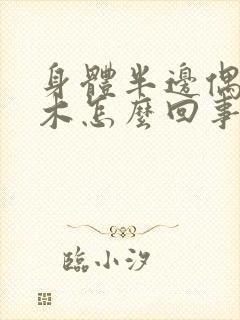 身體半邊偶
木怎麼回事
臨小汐